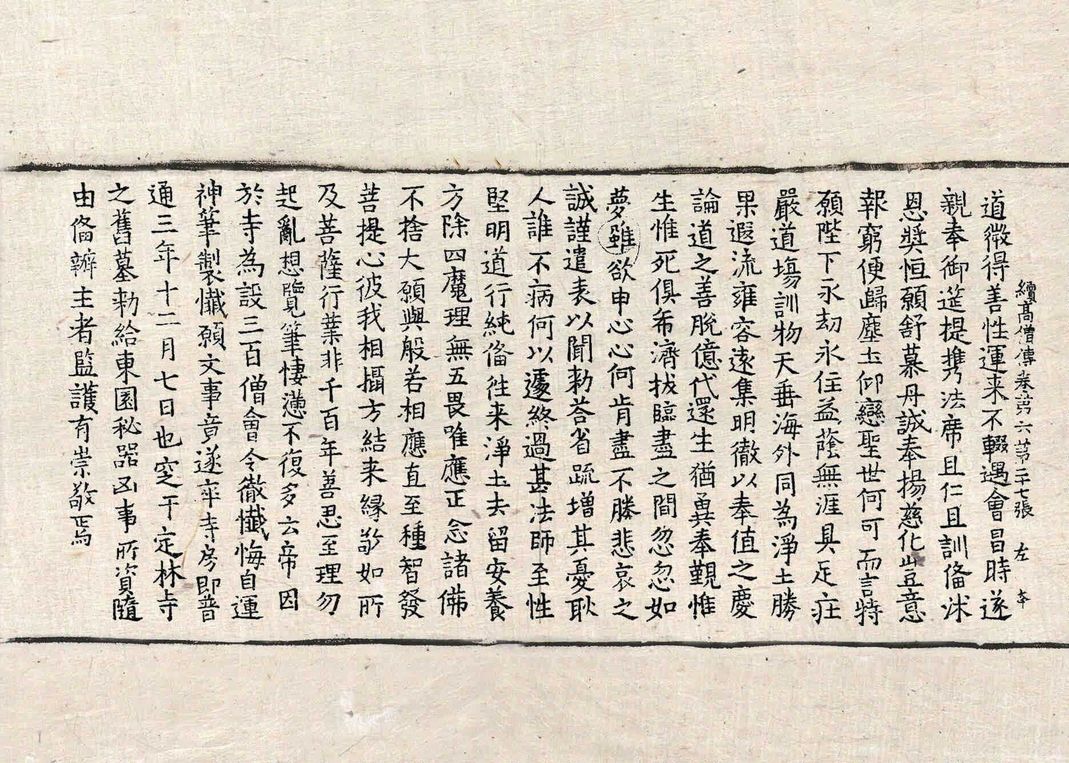 續高僧傳卷第六 第二十七張 左
道微得善性運来不輟遇會昌時遂
親奉御筵提携法席且仁且訓俻沐
恩獎恒願舒慕丹誠奉揚慈化豈意
報窮便歸塵土仰戀聖世何可而言特
願陛下永劫永住益蔭無涯具足莊
嚴道塲訓物天垂海外同為淨土勝
果遐流雍容遠集明徹以奉值之慶
論道之善脫億代還生猶冀奉覲惟
生惟死俱希濟拔臨盡之間忽忽如
夢雖欲申心心何肯盡不勝悲哀之
誠謹遣表以聞勅荅省疏增其憂耿
人誰不病何以遽終過甚法師至性
堅明道行純俻徃来淨土去留安養
方除四魔理無五畏唯應正念諸佛
不捨大願與般若相應直至種智發
菩提心彼我相攝方結来緣敬如所
及菩薩行業非千百年善思至理勿
起亂想覽筆悽懣不復多云帝因
於寺為設三百僧會令徹懺悔自運
神筆製懺願文事竟遂卒寺房即普
通三年十二月七日也窆于定林寺
之舊墓勅給東園秘器凶事所資隨
由俻辦主者監護有崇敬焉